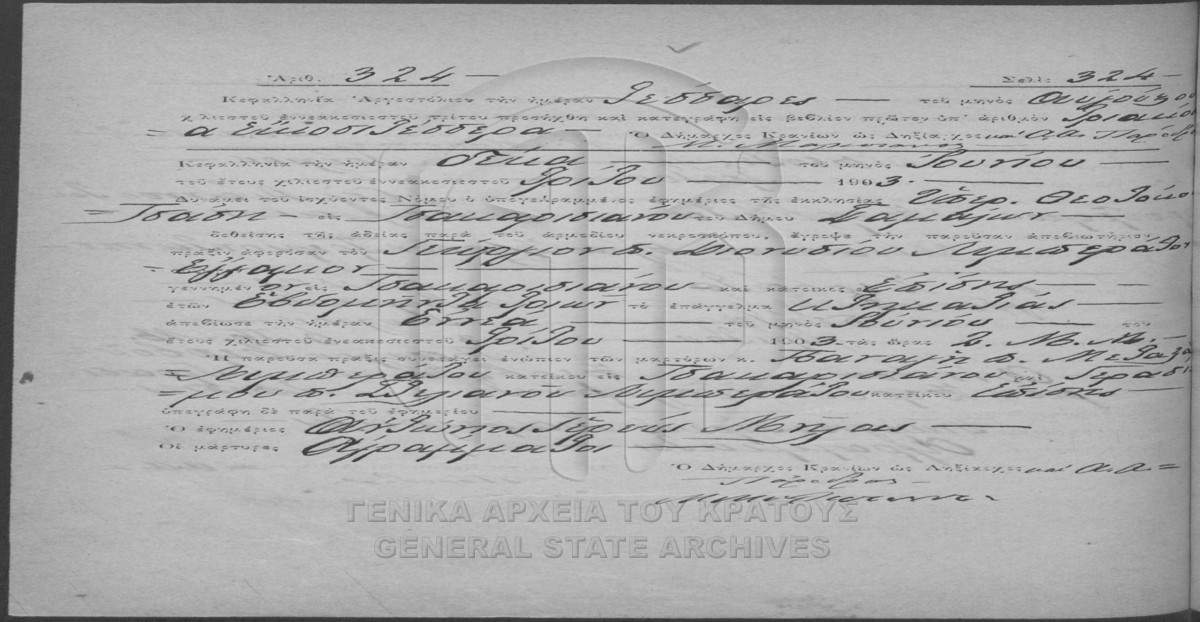 Ἀριθ. 324 — Σελὶς 324 —
Κεφαλληνία Ἀργοστόλιον τὴν ἡμέραν Τέσσαρες — τοῦ μηνὸς Αὐγούστου
χιλιοστοῦ ἐννεακοσιοστοῦ τρίτου προσήχθη καὶ κατεγράφη εἰς βιβλίον πρῶτον ὑπ' ἀριθμὸν Τριακόσ
= α Εἴκοσι τέσσερα — Ὁ Δήμαρχος Κρανίων ὡς Ληξίαρχος καὶ Α.Α. Πάρεδρ
Κεφαλληνία τὴν ἡμέραν δέκα — τοῦ μηνὸς Ἰουνίου —
τοῦ ἔτους χιλιοστοῦ ἐννεακοσιοστοῦ Τρίτου — 1903. —
Δυνάμει τοῦ ἰσχύοντος Νόμου ὁ ὑπογεγραμμένος ἐφημέριος τῆς ἐκκλησίας Ὑπερ. Θεοτόκο
= — εἰς Τσακαρισιάνου τοῦ Δήμου —
δοθείσης τῆς ἀδείας παρὰ τοῦ ἁρμοδίου νεκροσκόπου, ἔγραψε τὴν παροῦσαν ἀποβιωτήριον
πρᾶξιν ἀφορῶσαν τὸν Γεώργιον π. Διονυσίου Λιμπεράτον
= Ἔγγαμον —
γεννημένον εἰς Τσακαρισιάνου — καὶ κάτοικος Ἐπίσης —
ἐτῶν Ἑβδομῆντα τριῶν τὸ ἐπάγγελμα κτηματίας —
ἀπεβίωσε τὴν ἡμέραν Ἐννέα — τοῦ μηνὸς Ἰουνίου — τοῦ
ἔτους χιλιοστοῦ ἐνεακοσιοστοῦ Τρίτου — 1903 τὰς ὥρας 2. Μ. Μ. —
Ἡ παροῦσα πρᾶξις συνετάγει ἐνώπιον τῶν μαρτύρων κ. Παναγῆ π. Μεταξᾶ
= Λιμπεράτου κατοίκου εἰς Τσακαρισιάνου καὶ Γερασί
= μου π. Στυλιανοῦ Λιμπεράτου κατοίκου Ἐπίσης —
ὑπεγράφη δὲ παρὰ τοῦ ἐφημερίου —
Ὁ ἐφημέριος Ἀντώνιος Ἱερεὺς —
Οἱ μάρτυρες Ἀγράμματοι —
Ὁ Δήμαρχος Κρανίων ὡς Ληξίαρχος καὶ Α.Α. =
Πάρεδρος —
ΓΕΝΙΚΑ ΑΡΧΕΙΑ ΤΟΥ ΚΡΑΤΟΥΣ
GENERAL STATE ARCHIVES